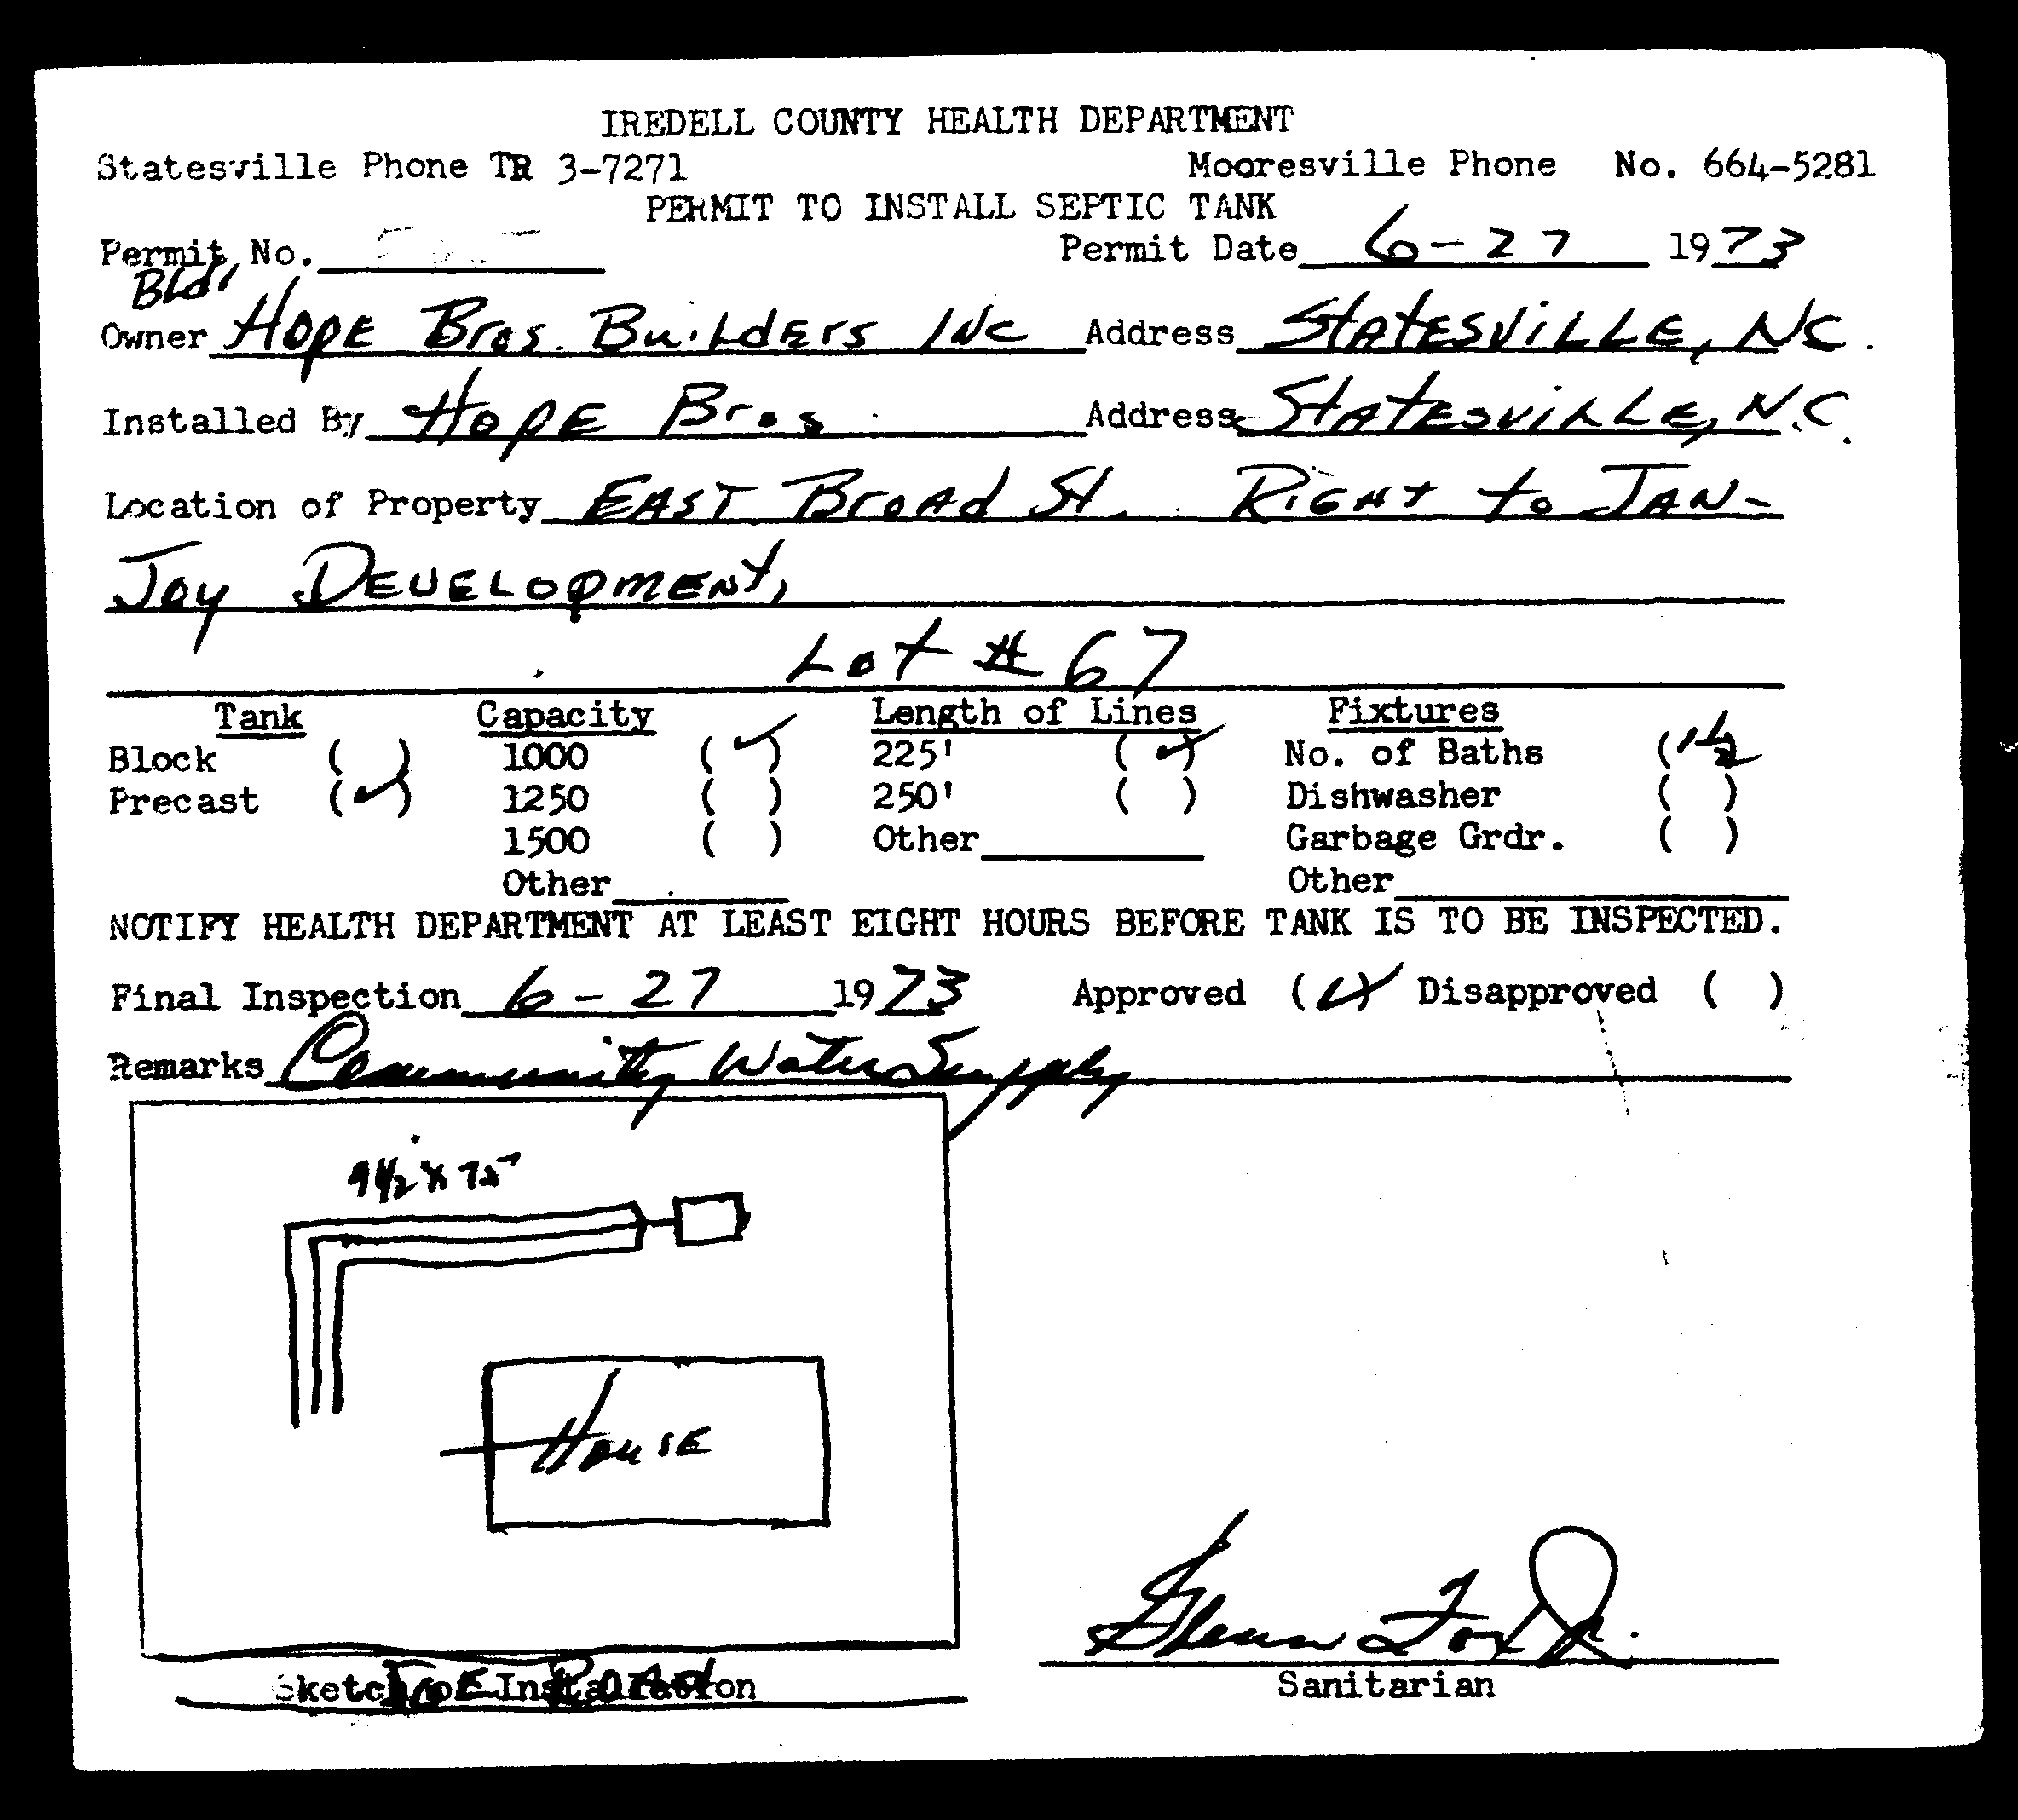 IREDELL COUNTY HEALTH DEPARTMENT
Statesville Phone TR 3-7271 Mooresville Phone No. 664-5281
PERMIT TO INSTALL SEPTIC TANK
Permit No. Permit Date 6-27 1973
Bldr
Owner Hope Bros. Builders Inc Address Statesville, NC.
Installed By Hope Bros. Address Statesville, N.C.
Location of Property East Broad St. Right to Jan-
Joy Development,
Lot # 67
Tank Capacity Length of Lines Fixtures
Block ( ) 1000 (✓) 225' (✓) No. of Baths (1 1/2
Precast (✓) 1250 ( ) 250' ( ) Dishwasher ( )
1500 ( ) Other Garbage Grdr. ( )
Other Other
NOTIFY HEALTH DEPARTMENT AT LEAST EIGHT HOURS BEFORE TANK IS TO BE INSPECTED.
Final Inspection 6-27 1973 Approved (✓) Disapproved ( )
Remarks Community Water Supply
House
Glenn Fox Jr.
Sketch of Installation Sanitarian
Road